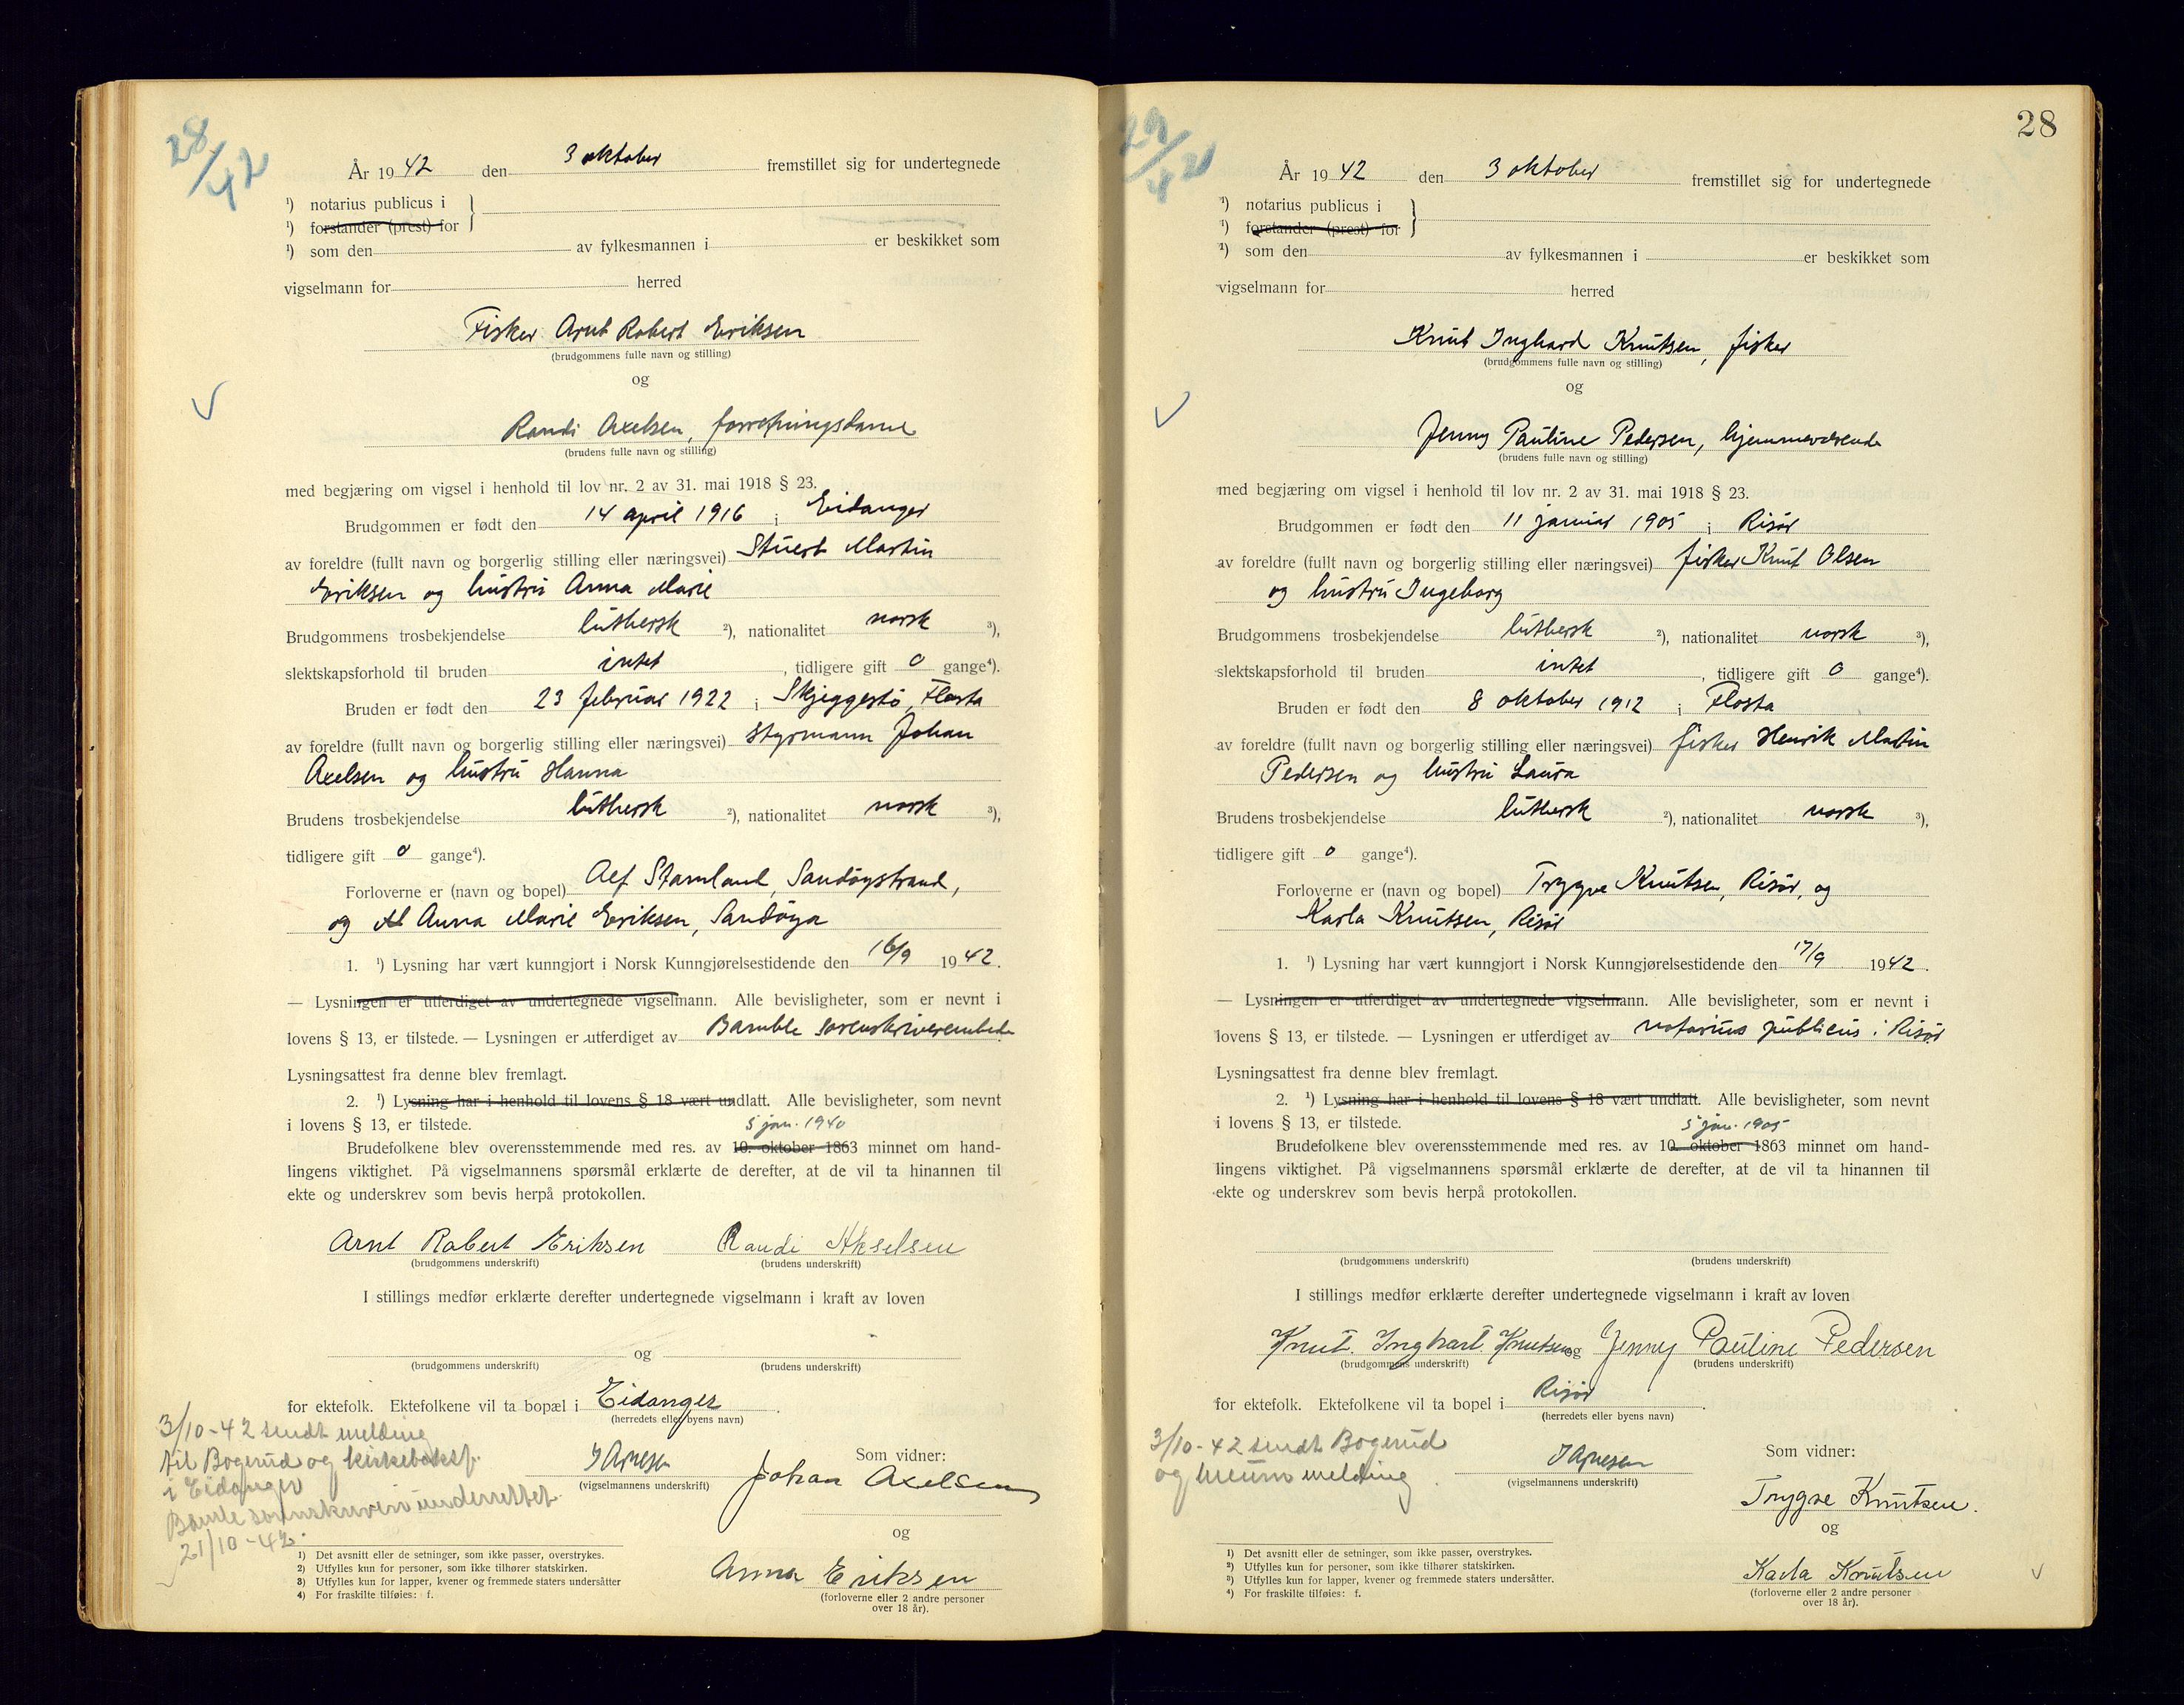 28/42
År 1942 den 3 oktober fremstillet sig for undertegnede
¹) notarius publicus i
¹) forstander (prest) for
¹) som den av fylkesmannen i er beskikket som
vigselmann for herred
Fisker Arnt Robert Eriksen
(brudgommens fulle navn og stilling)
og
Randi Axelsen, forretningsdame
(brudens fulle navn og stilling)
med begjæring om vigsel i henhold til lov nr. 2 av 31. mai 1918 § 23.
Brudgommen er født den 14 april 1916 i Eidanger
av foreldre (fullt navn og borgerlig stilling eller næringsvei) Stuert Martin
Eriksen og hustru Anna Marie
Brudgommens trosbekjendelse luthersk ²), nationalitet norsk ³),
slektskapsforhold til bruden intet, tidligere gift 0 gange⁴).
Bruden er født den 23 februar 1922 i Skjeggestö, Flosta
av foreldre (fullt navn og borgerlig stilling eller næringsvei) styrmann Johan
Axelsen og hustru Hanna
Brudens trosbekjendelse luthersk ²), nationalitet norsk ³),
tidligere gift 0 gange⁴).
Forloverne er (navn og bopel) Alf Stamland, Sandöystrand,
og Anna Marie Eriksen, Sandöya
1. ¹) Lysning har vært kunngjort i Norsk Kunngjørelsestidende den 16/9 1942.
— Lysningen er utferdiget av undertegnede vigselmann. Alle bevisligheter, som er nevnt i
lovens § 13, er tilstede. — Lysningen er utferdiget av Bamble sorenskriverembede
Lysningsattest fra denne blev fremlagt.
2. ¹) Lysning har i henhold til lovens § 18 vært undlatt. Alle bevisligheter, som nevnt
i lovens § 13, er tilstede.
5 jan. 1940
Brudefolkene blev overensstemmende med res. av 10. oktober 1863 minnet om hand-
lingens viktighet. På vigselmannens spørsmål erklærte de derefter, at de vil ta hinannen til
ekte og underskrev som bevis herpå protokollen.
Arnt Robert Eriksen Randi Akselsen
(brudgommens underskrift) (brudens underskrift)
I stillings medfør erklærte derefter undertegnede vigselmann i kraft av loven
og
(brudgommens underskrift) (brudens underskrift)
for ektefolk. Ektefolkene vil ta bopæl i Eidanger.
(herredets eller byens navn)
3/10-42 sendt melding
til Bogerud og kirkeboksf.
i Eidanger
Bamle sorenskriveri underrettet
21/10-42.
(vigselmannens underskrift)
Som vidner:
Johan Axelsen
og
Anna Eriksen
(forloverne eller 2 andre personer
over 18 år).
1) Det avsnitt eller de setninger, som ikke passer, overstrykes.
2) Utfylles kun for personer, som ikke tilhører statskirken.
3) Utfylles kun for lapper, kvener og fremmede staters undersåtter
4) For fraskilte tilføies: f.
28
29/42
År 1942 den 3 oktober fremstillet sig for undertegnede
¹) notarius publicus i
¹) forstander (prest) for
¹) som den av fylkesmannen i er beskikket som
vigselmann for herred
Knut Inghard Knutsen, fisker
(brudgommens fulle navn og stilling)
og
Jenny Pauline Pedersen, hjemmeværende
(brudens fulle navn og stilling)
med begjæring om vigsel i henhold til lov nr. 2 av 31. mai 1918 § 23.
Brudgommen er født den 11 januar 1905 i Risör
av foreldre (fullt navn og borgerlig stilling eller næringsvei) fisker Knut Olsen
og hustru Ingeborg
Brudgommens trosbekjendelse luthersk ²), nationalitet norsk ³),
slektskapsforhold til bruden intet, tidligere gift 0 gange⁴).
Bruden er født den 8 oktober 1912 i Flosta
av foreldre (fullt navn og borgerlig stilling eller næringsvei) fisker Henrik Martin
Pedersen og hustru Laura
Brudens trosbekjendelse luthersk ²), nationalitet norsk ³),
tidligere gift 0 gange⁴).
Forloverne er (navn og bopel) Trygve Knutsen, Risör, og
Karla Knutsen, Risör
1. ¹) Lysning har vært kunngjort i Norsk Kunngjørelsestidende den 17/9 1942.
— Lysningen er utferdiget av undertegnede vigselmann. Alle bevisligheter, som er nevnt i
lovens § 13, er tilstede. — Lysningen er utferdiget av notarius publicus i Risör
Lysningsattest fra denne blev fremlagt.
2. ¹) Lysning har i henhold til lovens § 18 vært undlatt. Alle bevisligheter, som nevnt
i lovens § 13, er tilstede.
5 jan. 1905
Brudefolkene blev overensstemmende med res. av 10. oktober 1863 minnet om hand-
lingens viktighet. På vigselmannens spørsmål erklærte de derefter, at de vil ta hinannen til
ekte og underskrev som bevis herpå protokollen.
(brudgommens underskrift) (brudens underskrift)
I stillings medfør erklærte derefter undertegnede vigselmann i kraft av loven
Knut. Inghart. Knutsen og Jenny Pauline Pedersen
(brudgommens underskrift) (brudens underskrift)
for ektefolk. Ektefolkene vil ta bopel i Risör.
(herredets eller byens navn)
3/10-42 sendt Bogerud
og melding
(vigselmannens underskrift)
Som vidner:
Trygve Knutsen.
og
Karla Knutsen
(forloverne eller 2 andre personer
over 18 år).
¹) Det avsnitt eller de setninger, som ikke passer, overstrykes.
²) Utfylles kun for personer, som ikke tilhører statskirken.
³) Utfylles kun for lapper, kvener og fremmede staters undersåtter.
⁴) For fraskilte tilføies: f.